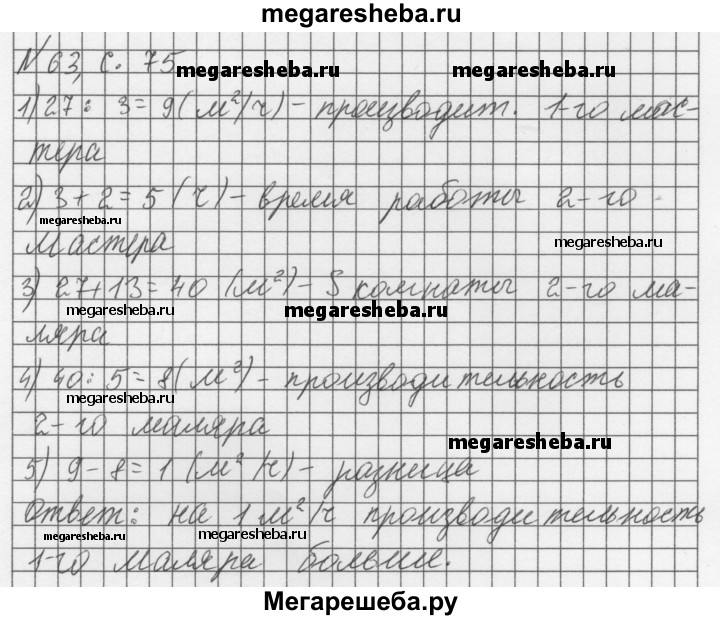 megaresheba.ru
№ 63, с. 75
megaresheba.ru megaresheba.ru
1) 27 : 3 = 9 (м²/ч) – производит. 1-го мас-
тера
2) 3 + 2 = 5 (ч) – время работы 2-го
megaresheba.ru
мастера
megaresheba.ru
3) 27 + 13 = 40 (м²) – S комнаты 2-го ма-
megaresheba.ru megaresheba.ru
ляра
4) 40 : 5 = 8 (м²) – производительность
megaresheba.ru
2-го маляра
megaresheba.ru
5) 9 – 8 = 1 (м²/ч) – разница
Ответ: на 1 м²/ч производительность
megaresheba.ru megaresheba.ru
1-го маляра больше.
Мегарешеба.ру